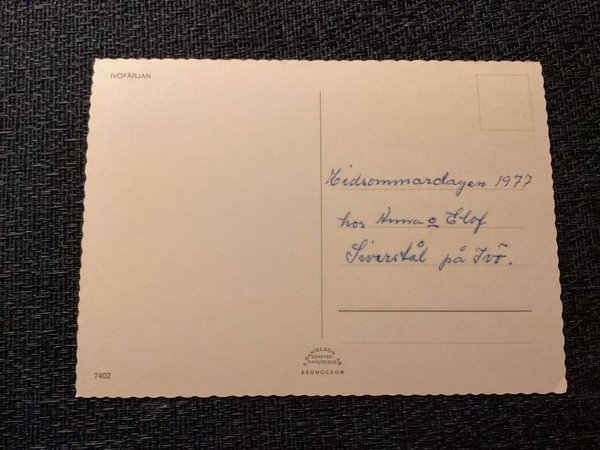 IVÖFÄRJAN
Midsommardagen 1977
hos Anna o Elof
Siverstål på Ivö.
KRONOCROM
7402